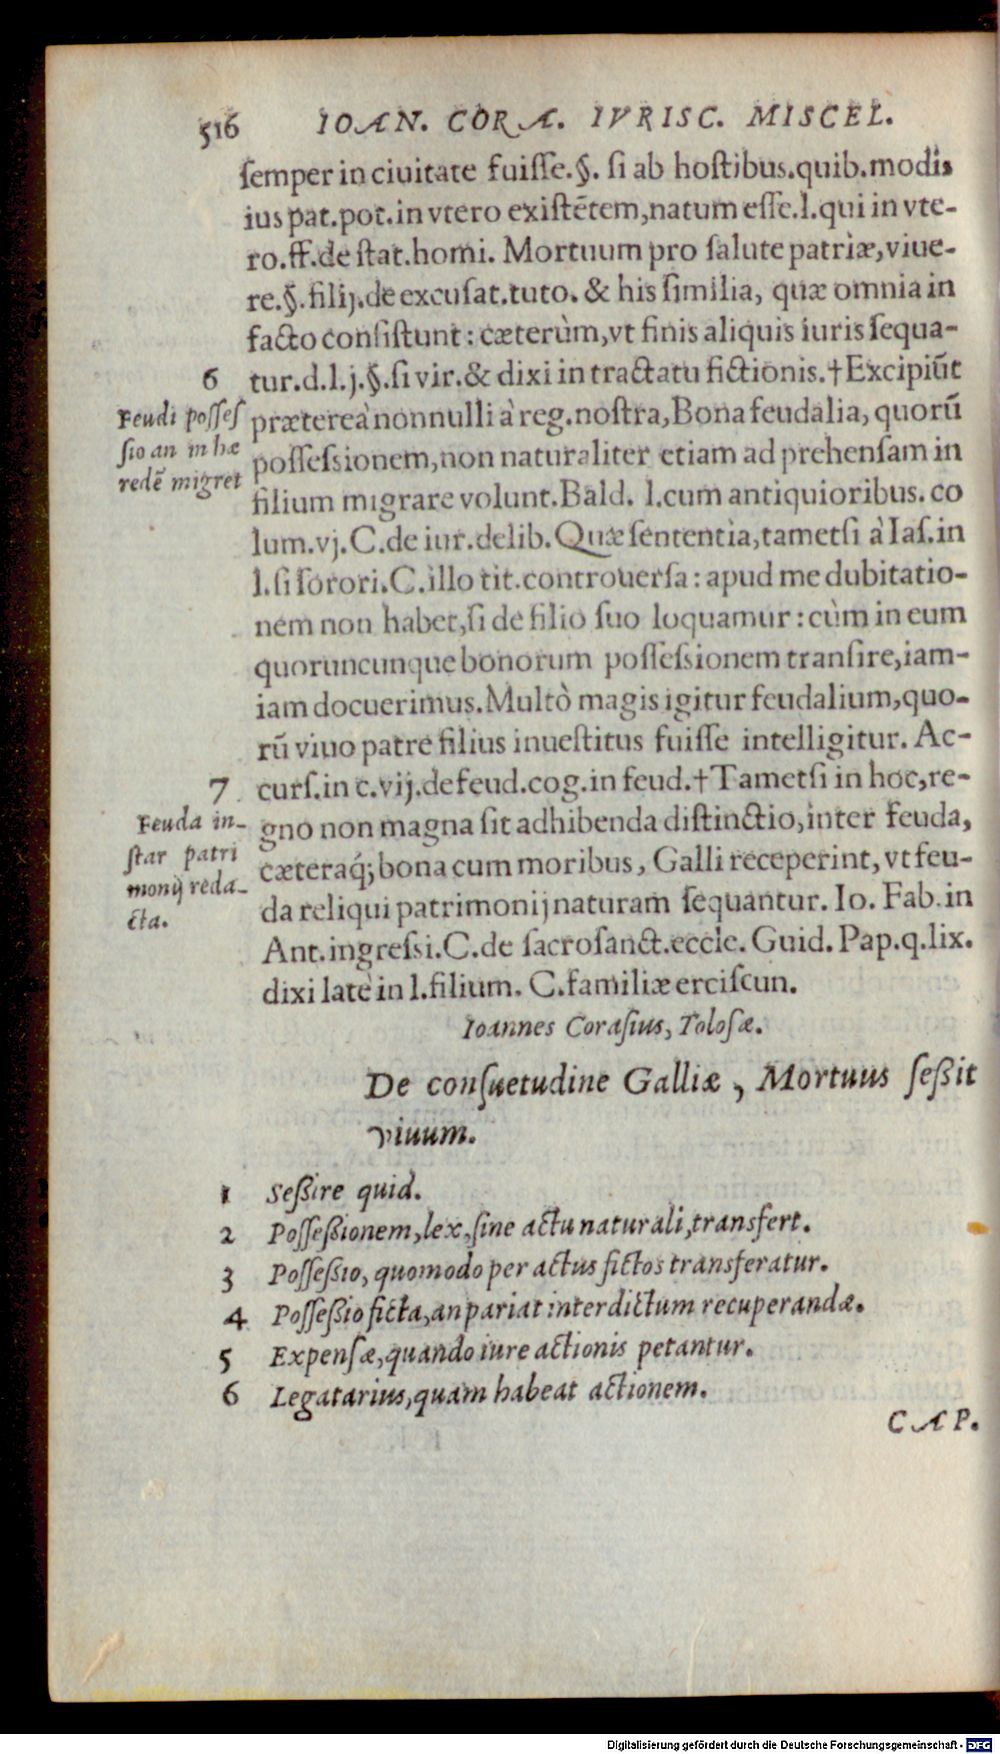 516 IOAN. CORA. IVRISC. MISCEL.
ſemper in ciuitate fuiſſe.§. ſi ab hoſtibus.quib.modis
ius pat.pot.in vtero exiſtẽtem,natum eſſe.l.qui in vte-
ro.ff.de ſtat.homi. Mortuum pro ſalute patriæ,viue-
re.§.filij.de excuſat.tuto. & his ſimilia, quæ omnia in
facto conſiſtunt : cæterùm,vt finis aliquis iuris ſequa-
6 tur.d.l.j.§.ſi vir.& dixi in tractatu fictionis.†Excipiũt
Feudi poſſeſ
ſio an in hæ
redẽ migret
præterea nonnulli à reg.noſtra,Bona feudalia, quorũ
poſſeſsionem,non naturaliter etiam ad prehenſam in
filium migrare volunt.Bald. l.cum antiquioribus.co
lum.vj.C.de iur.delib.Quæ ſententia,tametſi à Iaſ.in
l.ſi ſorori.C.illo tit.controuerſa : apud me dubitatio-
nem non habet,ſi de filio ſuo loquamur : cùm in eum
quoruncunque bonorum poſſeſsionem tranſire,iam-
iam docuerimus.Multò magis igitur feudalium,quo-
rũ viuo patre filius inueſtitus fuiſſe intelligitur. Ac-
7 curſ.in c.vij.de feud.cog.in feud.†Tametſi in hoc,re-
Feuda in-
ſtar patri
monij reda-
cta.
gno non magna ſit adhibenda diſtinctio,inter feuda,
cæteraq́; bona cum moribus, Galli receperint, vt feu-
da reliqui patrimonij naturam ſequantur. Io. Fab.in
Ant.ingreſsi.C.de ſacroſanct.eccle. Guid. Pap.q.lix.
dixi latè in l.filium. C.familiæ erciſcun.
Ioannes Coraſius, Toloſæ.
De conſuetudine Galliæ , Mortuus ſeßit
viuum.
1 Seßire quid.
2 Poſſeßionem,lex,ſine actu naturali,transfert.
3 Poſſeßio, quomodo per actus fictos transferatur.
4 Poſſeßio ficta,an pariat interdictum recuperandæ.
5 Expenſæ,quando iure actionis petantur.
6 Legatarius,quam habeat actionem.
CAP.
Digitalisierung gefördert durch die Deutsche Forschungsgemeinschaft - DFG